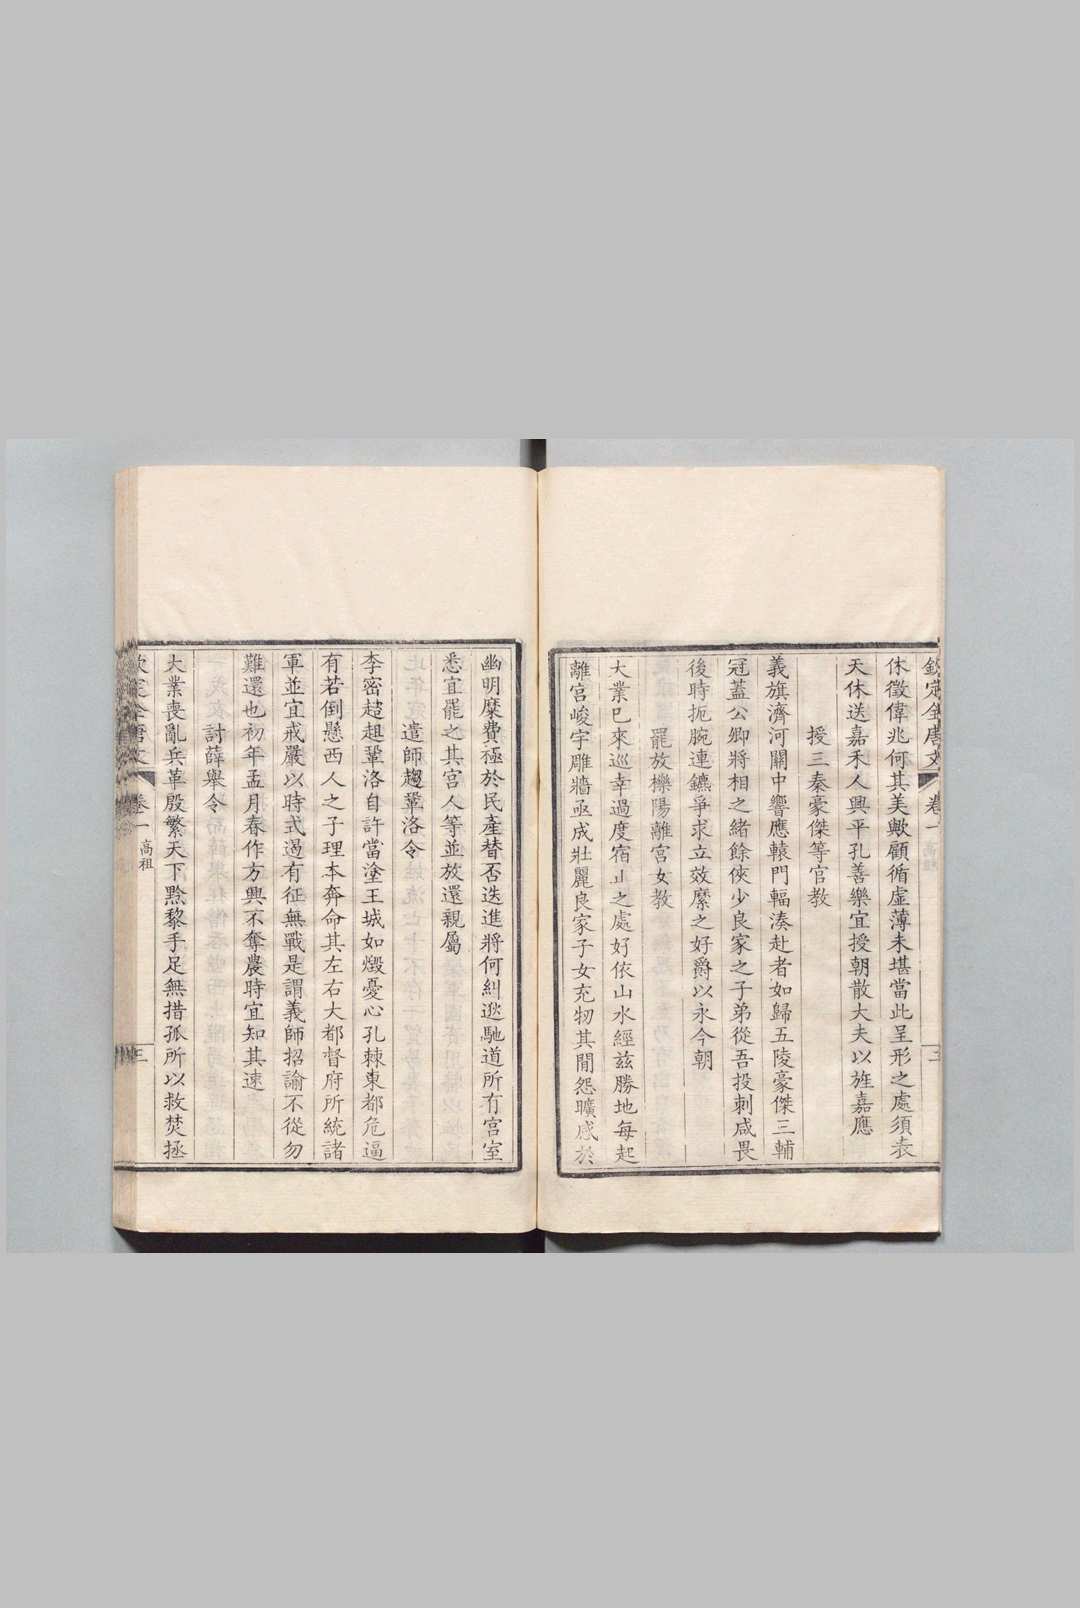 欽定全唐文 卷一 高祖 三
休徵偉兆何其美歟顧循虛薄未堪當此呈形之處須表
天休送嘉禾人興平孔善樂宜授朝散大夫以旌嘉應
授三秦豪傑等官教
義旗濟河關中響應轅門輻湊赴者如歸五陵豪傑三輔
冠蓋公卿將相之緒餘俠少良家之子弟從吾投刺咸畏
後時扼腕連鑣爭求立效縻之好爵以永今朝
罷放櫟陽離宮女教
大業已來巡幸過度宿止之處好依山水經茲勝地每起
離宮峻宇雕牆亟成壯麗良家子女充牣其閒怨曠感於
幽明糜費極於民產替否迭進將何糾逖馳道所有宮室
悉宜罷之其宮人等並放還親屬
遣師趨鞏洛令
李密趑趄鞏洛自許當塗王城如燬憂心孔棘東都危逼
有若倒懸西人之子理本奔命其左右大都督府所統諸
軍並宜戒嚴以時式遏有征無戰是謂義師招諭不從勿
難還也初年孟月春作方興不奪農時宜知其速
討薛舉令
大業喪亂兵革殷繁天下黔黎手足無措孤所以救焚拯
欽定全唐文 卷一 高祖 三